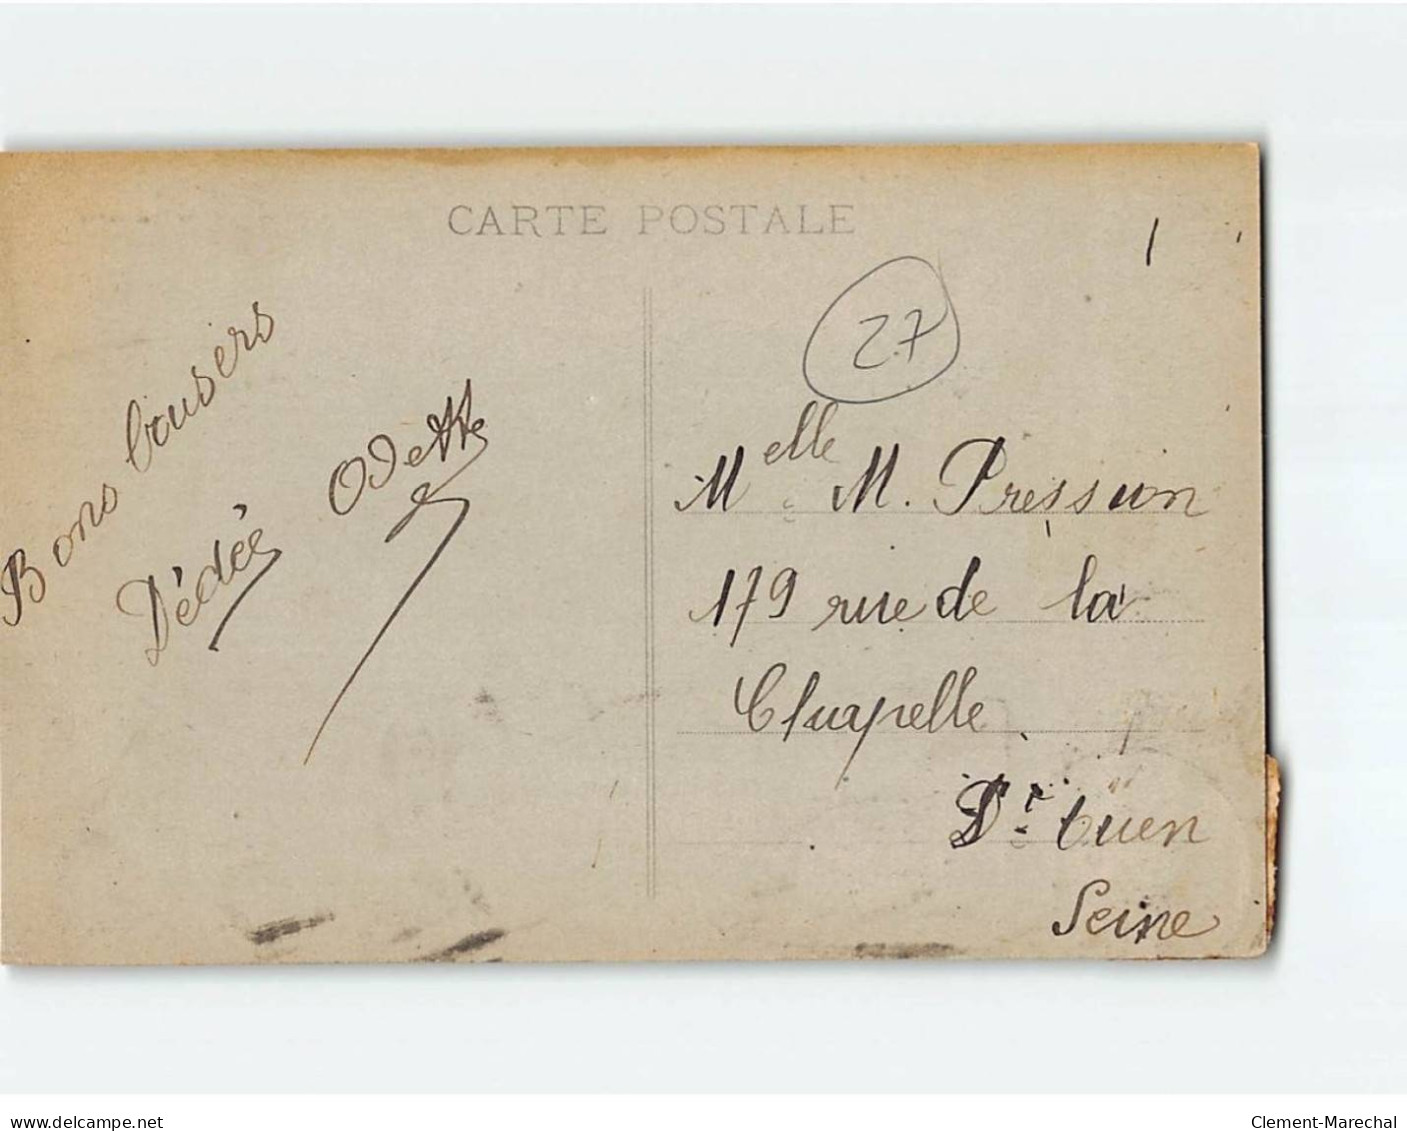 CARTE POSTALE
27
Bons bousers
Dédée Odette
Melle M. Pression
179 rue de la
Chapelle
St Ouen
Seine
www.delcampe.net
Clement-Marechal